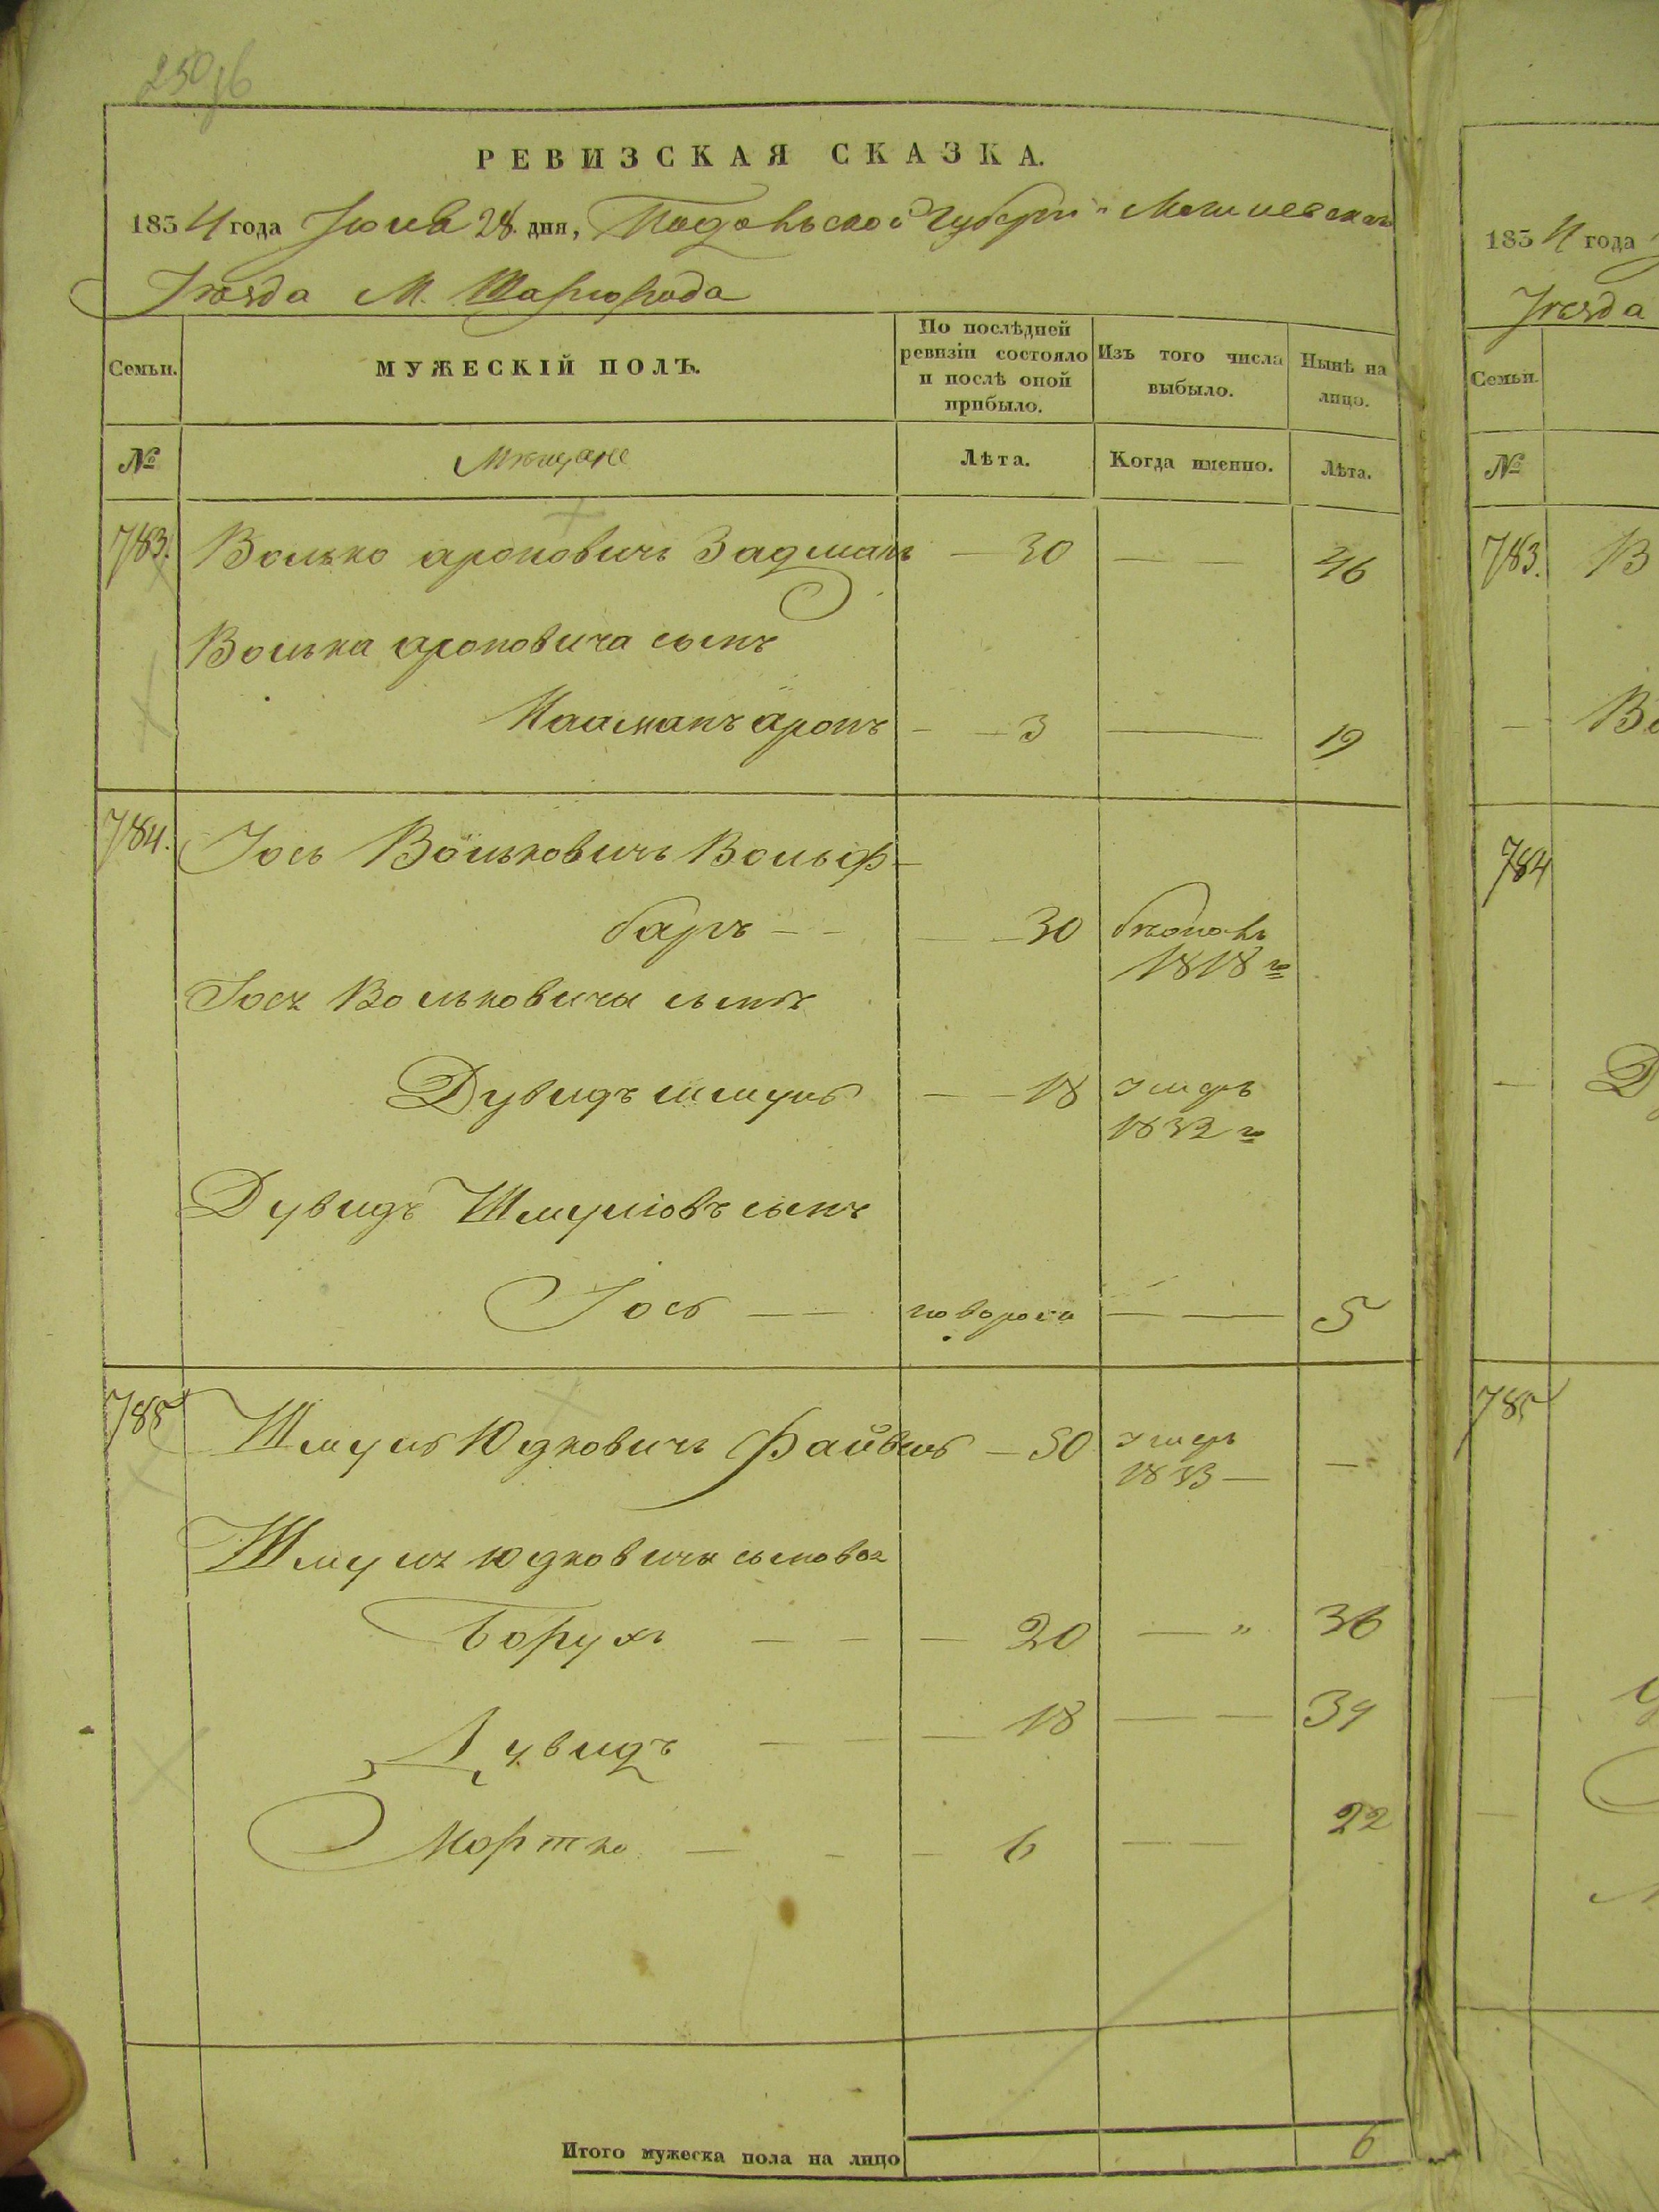 250 об
РЕВИЗСКАЯ СКАЗКА.
1834 года Июня 28 дня, Подольской Губерніи Могилевскаго
Уѣзда М. Шаргорода
Семьи.
МУЖЕСКІЙ ПОЛЪ.
По послѣдней ревизіи состояло и послѣ оной прибыло.
Изъ того числа выбыло.
Нынѣ на лицо.
№
Мѣщане
Лѣта.
Когда именно.
Лѣта.
783. Волько Ароновичъ Задманъ — 30 — — 46
Волька Ароновича сынъ
Нахманъ Аронъ — — 3 — 19
784. Іось Вольковичъ Вольф-
баръ — — — — 30
1818 го
Іося Вольковича сынъ
Дувидъ Шмуль — — 18 умеръ
1832 го
Дувидъ Шмулiовъ сынъ
Іось — — — — 5
785 Шмуль Юдковичъ Файвель — 50 умеръ —
1833 —
Шмуля Юдковича сыновья
Борухъ — — — 20 — " 36
Дувидъ — — — 18 — — 34
Мортко — - - 6 — — 22
Итого мужеска пола на лицо 6
1834 года
Уѣзда
Семьи.
№
783. В
— Во
784
— Д
785